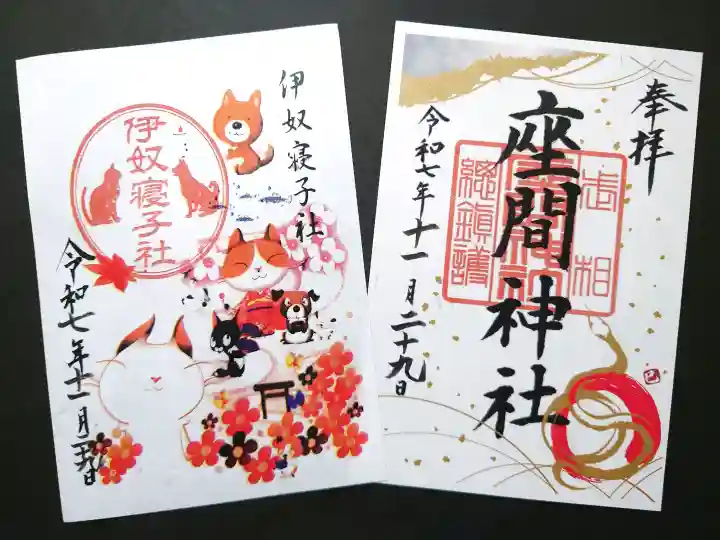 伊奴寝子社
伊奴寝子社
令和七年十一月二十九日
奉拝
座間神社
相
總鎮護
令和七年十一月二十九日
巳